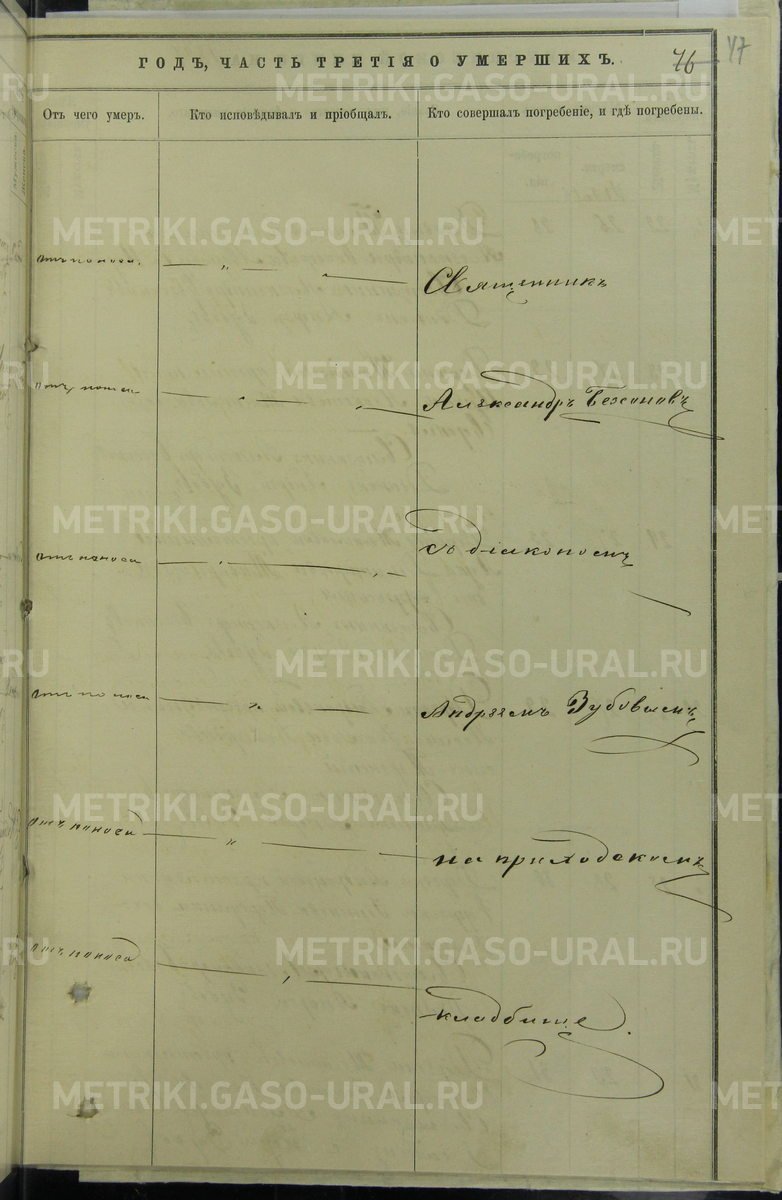 ГОДЪ, ЧАСТЬ ТРЕТІЯ О УМЕРШИХЪ.
76 47
Отъ чего умеръ. Кто исповѣдывалъ и пріобщалъ. Кто совершалъ погребеніе, и гдѣ погребены.
отъ поноса. — „ — „ — Священникъ
отъ поноса — „ — „ — Александръ
отъ поноса — „ — „ — съ діакономъ
отъ поноса — „ — Андреемъ Зубовымъ,
отъ поноса — „ — на приходскомъ
отъ поноса — „ — кладбище.
METRIKI.GASO-URAL.RU